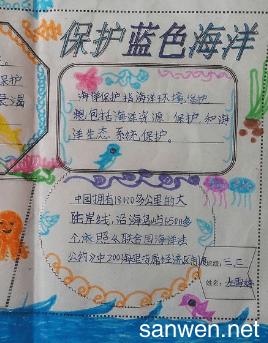 保护蓝色海洋
保护
海洋保护括海洋环境保护
包括海洋资源保护和海
洋生态系统保护。
中国拥有18000多公里的大
陆岸线,沿海岛屿6500多
个,依照《联合国海洋法
公约》中200海里
班级:三、二
姓名:
sanwen.net